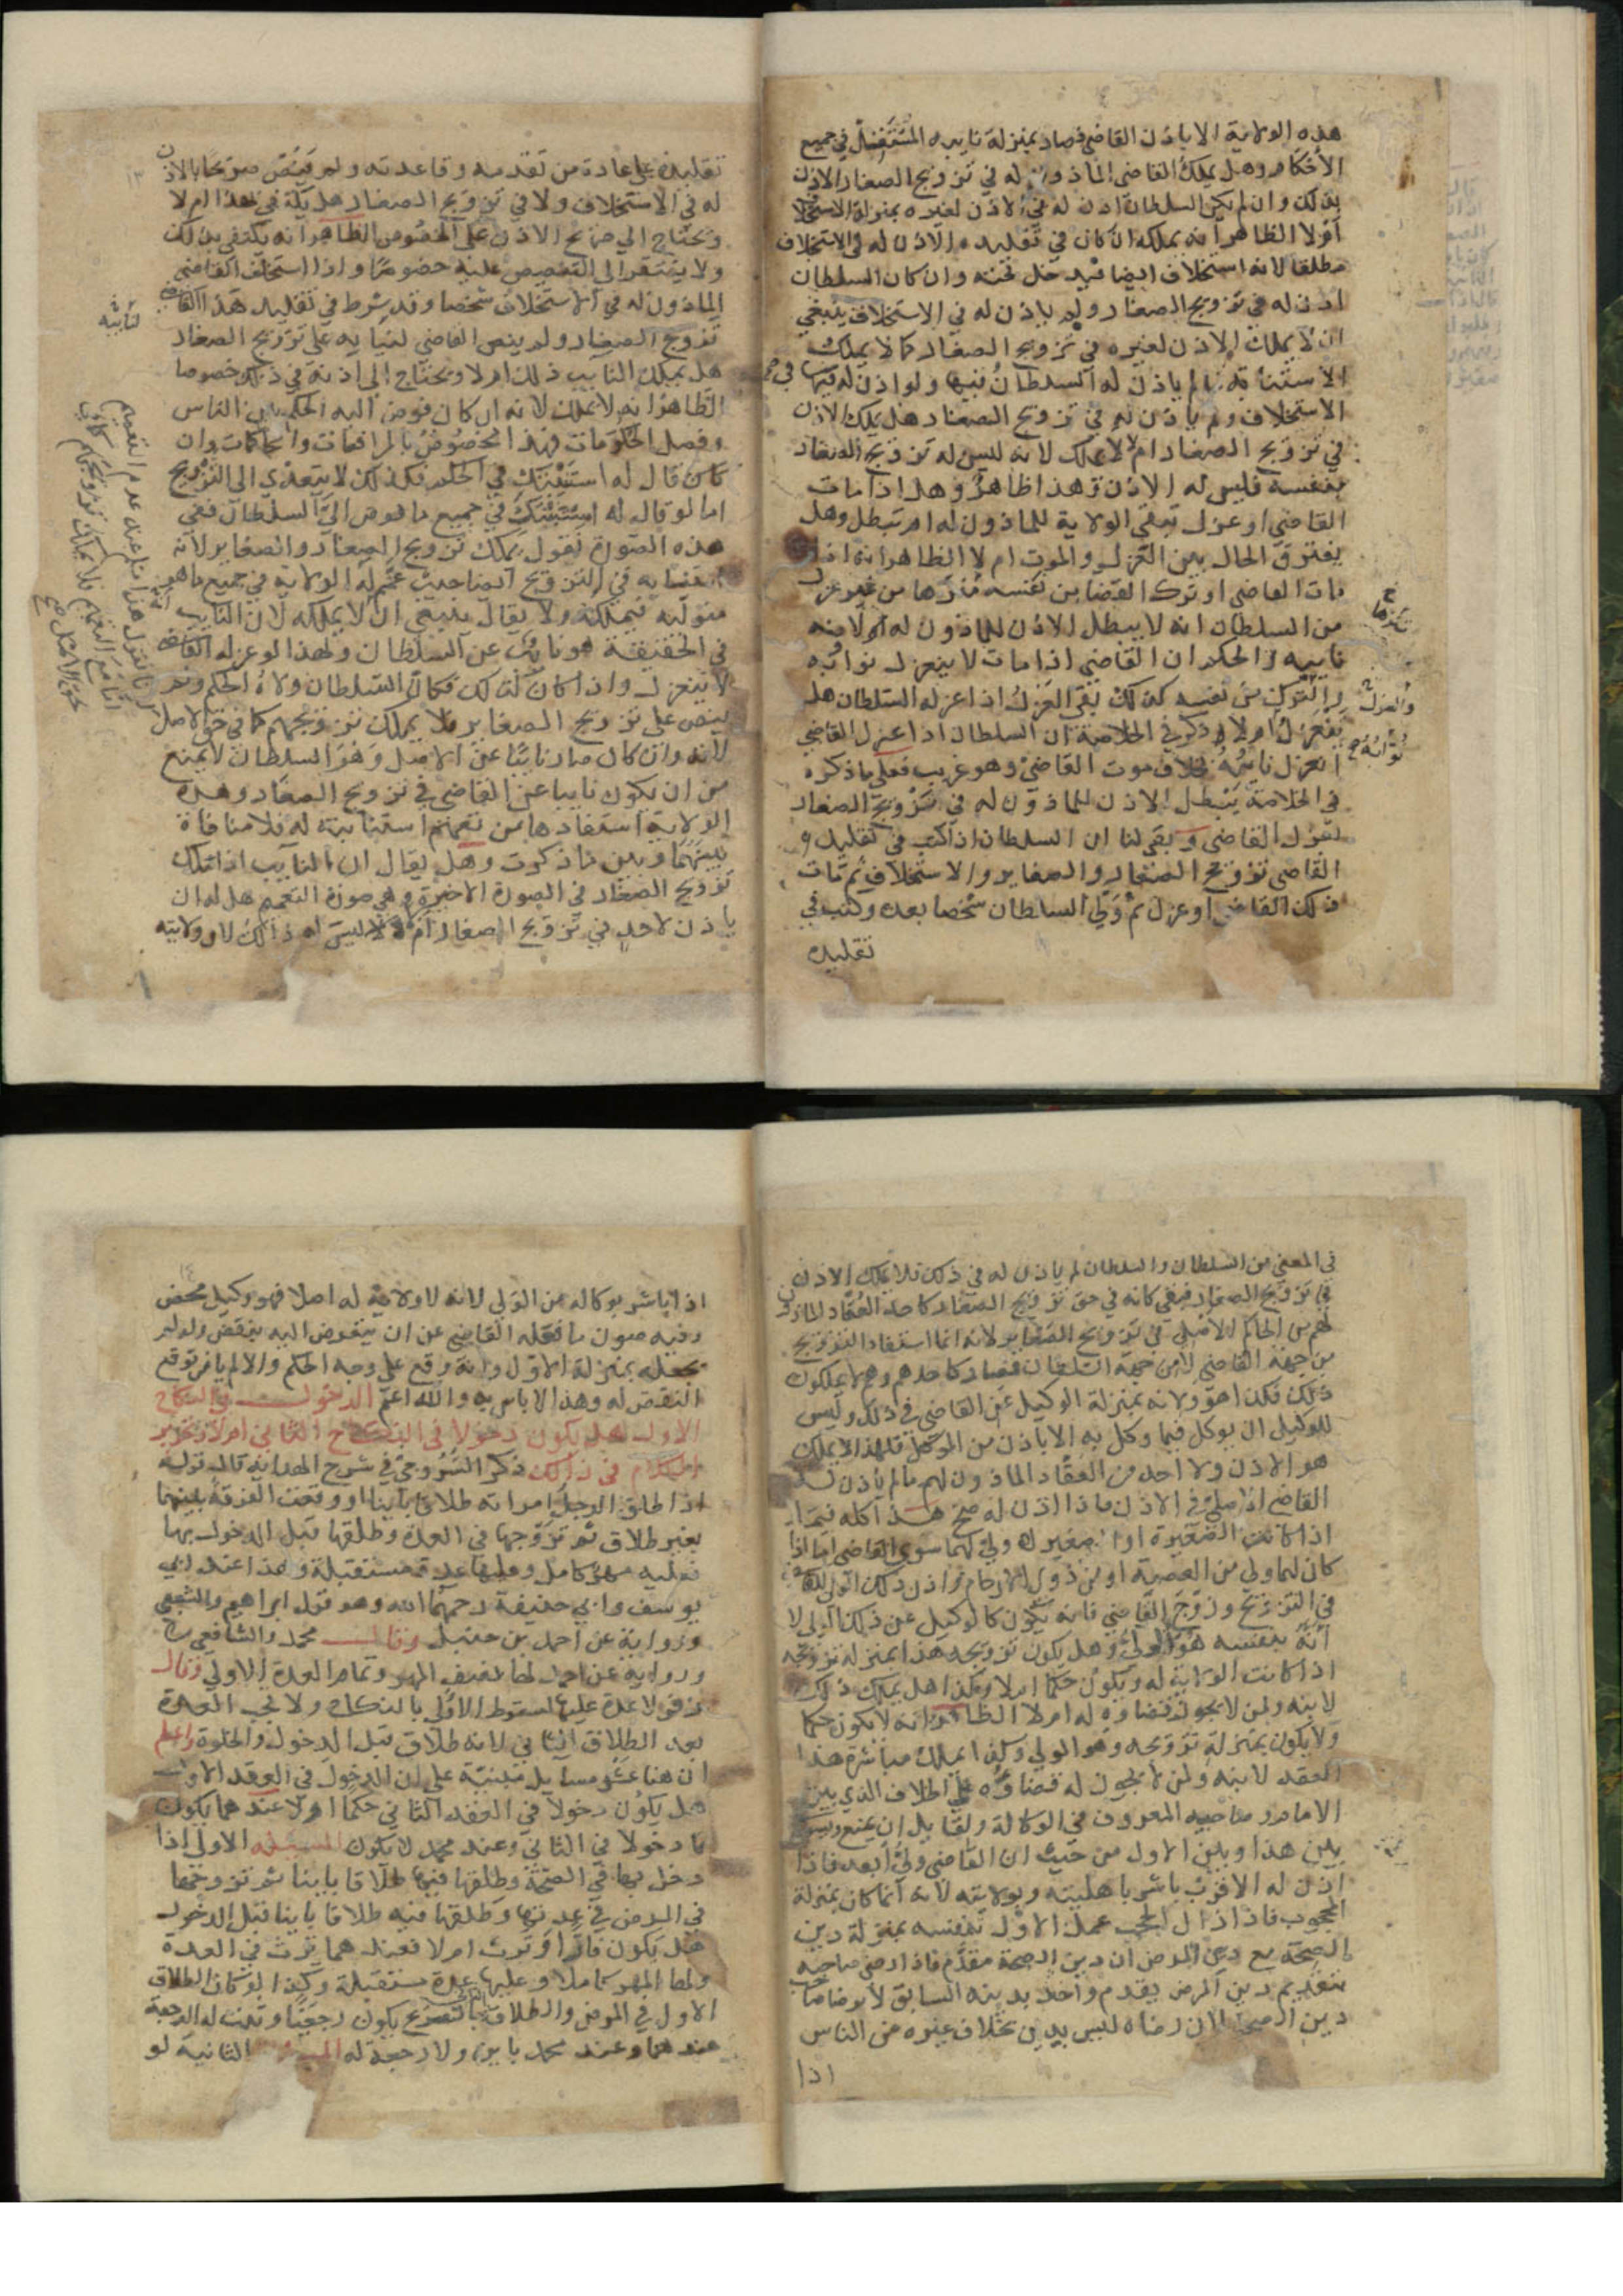 هذه الولاية الا باذن القاضي فصار بمنزلة نايبه المستقل في جميع
الاحكام وهل يملك القاضي الماذون له في تزويج الصغار الاذن
بذلك وان لم يكن السلطان اذن له في الاذن لغيره بمنزلة الاستخلاف
اولا الظاهر انه يملكه ان كان في تقليده الاذن له في الاستخلاف
مطلقا لانه استخلاف ايضا فيدخل تحته وان كان السلطان
اذن له في تزويج الصغار ولم ياذن له في الاستخلاف ينبغي
ان لا يملك الاذن لغيره في تزويج الصغار كما لا يملك
الاستنابة ما لم ياذن له السلطان فيها ولو اذن له فيها في
الاستخلاف ولم ياذن له في تزويج الصغار هل يملك الاذن
في تزويج الصغار ام لا لا يملك لانه ليس له تزويج الصغار
بنفسه فليس له الاذن وهذا ظاهر وهل اذا مات
القاضي او عزل تبقى الولاية للماذون له ام تبطل وهل
يفترق الحال بين العزل والموت ام لا الظاهر انه اذا
مات القاضي او ترك القضا من نفسه تنزها من غير عزل
من السلطان انه لا يبطل الاذن للماذون له لانه
نايبه والحكم ان القاضي اذا مات لا ينعزل نوابه
والترك من نفسه كذلك بقي العزل اذا عزله السلطان هل
ينعزل ام لا ذكر في الخلاصة ان السلطان اذا عزل القاضي
انعزل نايبه بخلاف موت القاضي وهو غريب فعلى ما ذكره
في الخلاصة يبطل الاذن للماذون له في تزويج الصغار
بعزل القاضي وبقي لنا ان السلطان اذا كتب في تقليده
القاضي تزويج الصغار والصغاير والاستخلاف ثم مات
ذلك القاضي او عزل ثم ولي السلطان شخصا بعده وكتب في
تقليده
تنزها
والعزل
نوابه
تقليده على عادة من تقدمه وقاعدته ولم ينص صريحا بالاذن
له في الاستخلاف ولا في تزويج الصغار هل يملك في هذا ام لا
ويحتاج الى صريح الاذن على الخصوص الظاهر انه يكتفي بذلك
ولا يفتقر الى التنصيص عليه خصوصا واذا استخلف القاضي
الماذون له في الاستخلاف شخصا وقد شرط في تقليد هذا القاضي
تزويج الصغار ولم ينص القاضي لنايبه على تزويج الصغار
هل يملك النايب ذلك ام لا ويحتاج الى اذنه في ذلك خصوصا
الظاهر انه لا يملك لانه ان كان فوض اليه الحكم بين الناس
وفصل الحكومات فهذا مخصوص بالمرافعات والمحاكمات وان
كان قال له استنبتك في الحكم فكذلك لا يتعدى الى التزويج
اما لو قال له استنبتك في جميع ما فوض الي السلطان ففي
هذه الصورة نقول يملك تزويج الصغار والصغاير لانه
استنابه في التزويج ايضا حيث عمم له الولاية في جميع ما هو
متوليه فيملكه ولا يقال ينبغي ان لا يملكه لان النايب
في الحقيقة هو نايب عن السلطان ولهذا لو عزله القاضي
لا ينعزل واذا كان كذلك فكان السلطان ولاه الحكم ولم
ينص على تزويج الصغاير فلا يملك تزويجهم كما في حق الاصل
لانه وان كان صار نايبا عن الاصل وهو السلطان لا يمنع
من ان يكون نايبا عن القاضي في تزويج الصغار وهذه
الولاية استفادها من تعميم استنابته له فلا منافاة
بينهما وبين ما ذكرت وهل يقال ان النايب اذا تملك
تزويج الصغار في الصورة الاخيرة وهي صورة التعميم هل له ان
ياذن لاحد في تزويج الصغار ام لا ليس له ذلك لان ولايته
لنايبه
في المعنى من السلطان والسلطان لم ياذن له في ذلك فلا يملك الاذن
في تزويج الصغار فبقي كانه في حق تزويج الصغار كاحد العقاد الماذون
لهم من الحاكم الاصلي في تزويج الصغاير لانه انما استفاد التزويج
من جهة القاضي لا من جهة السلطان فصار كاحدهم وهم لا يملكون
ذلك فكذا هو ولانه بمنزلة الوكيل عن القاضي في ذلك وليس
للوكيل ان يوكل فيما وكل به الا باذن من الموكل فلهذا لا يملك
هو الاذن ولا احد من العقاد الماذون لهم ما لم ياذن له
القاضي الاصلي في الاذن فاذا اذن له صح هذا كله فيما
اذا كانت الصغيرة او الصغير لا ولي لهما سوى القاضي اما اذا
كان لهما ولي من العصبة او من ذوي الارحام واذن ذلك الولي للقاضي
في التزويج وزوج القاضي فانه يكون كالوكيل عن ذلك الولي لا
انه بنفسه هو الولي وهل يكون تزويجه هذا بمنزلة تزويجه
اذا كانت الولاية له ويكون حكما ام لا وكذا هل يملك ذلك
لابنه ولمن لا يجوز قضاؤه له ام لا الظاهر انه لا يكون حكما
ولا يكون بمنزلة تزويجه وهو الولي وكذا يملك مباشرة هذا
العقد لابنه ولمن لا يجوز له قضاؤه على اطلاق الذي بين
الامام وصاحبيه المعروف في الوكالة ولقايل ان يمنع ويسوي
بين هذا وبين الاول من حيث ان القاضي ولي ابعد فاذا
اذن له الاقرب باشر باهليته وبولايته لانه انما كان بمنزلة
المحجوب فاذا زال الحجب عمل الاول بنفسه بمنزلة دين
الصحة مع دين المرض ان دين الصحة مقدم فاذا رضي صاحبه
بتقديم دين المرض يقدم واخذ بدينه السابق لا برضا صاحب
دين الصحة لان رضاه ليس بدين بخلاف غيره من الناس
اذا
اذا باشر بوكالة من الولي لانه لا ولاية له اصلا فهو وكيل محض
وفيه صون ما فعله القاضي عن ان يتعرض اليه بنقض ولو لم
يجعله بمنزلة الاول وانه وقع على وجه الحكم والا لم يامن توقع
النقض له وهذا لا باس به والله اعلم الدخول في النكاح
الاول هل يكون دخولا في النكاح الثاني ام لا وتحرير
الكلام في ذلك ذكر السروجي في شرح الهداية قال قوله
اذا طلق الرجل امراته طلاقا باينا او وقعت الفرقة بينهما
بغير طلاق ثم تزوجها في العدة وطلقها قبل الدخول بها
فعليه مهر كامل وعليها عدة مستقبلة وهذا عند ابي
يوسف وابي حنيفة رحمهما الله وهو قول ابراهيم والشعبي
ورواية عن احمد بن حنبل وقال محمد والشافعي
ورواية عن احمد لها نصف المهر وتمام العدة الاولى وقال
زفر لا عدة عليها لسقوط الاولى بالنكاح ولا تجب العدة
بعد الطلاق الثاني لانه طلاق قبل الدخول والخلوة واعلم
ان هنا عشر مسايل مبنية على ان الدخول في العقد الاول
هل يكون دخولا في العقد الثاني حكما ام لا عندهما يكون
دخولا في الثاني وعند محمد لا يكون المسئلة الاولى اذا
دخل بها في الصحة وطلقها فيها طلاقا باينا ثم تزوجها
في المرض في عدتها وطلقها فيه طلاقا باينا قبل الدخول
هل يكون فارا وترث ام لا فعندهما ترث في العدة
ولها المهر كاملا وعليها عدة مستقبلة وكذا لو كان الطلاق
الاول في المرض والطلاق بالتصريح يكون رجعيا وثبت له الرجعة
عندهما وعند محمد باين ولا رجعة له المسئلة الثانية لو